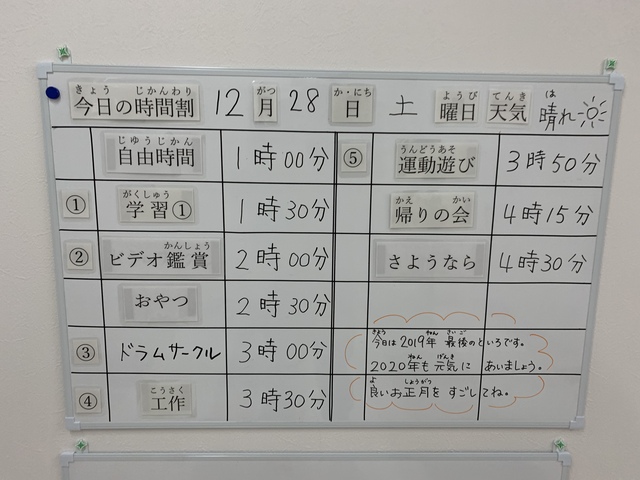 きょう じかんわり がつ か・にち ようび てんき は
今日の時間割 12月28日 土曜日 天気 晴れ
じゆうじかん
自由時間 1時00分
がくしゅう
① 学習① 1時30分
かんしょう
② ビデオ鑑賞 2時00分
おやつ 2時30分
③ ドラムサークル 3時00分
こうさく
④ 工作 3時30分
うんどうあそ
⑤ 運動遊び 3時50分
かえ かい
帰りの会 4時15分
さようなら 4時30分
きょう ねん さいご
今日は2019年 最後のといろです。
ねん げんき
2020年も元気に あいましょう。
よ しょうがつ
良いお正月を すごしてね。